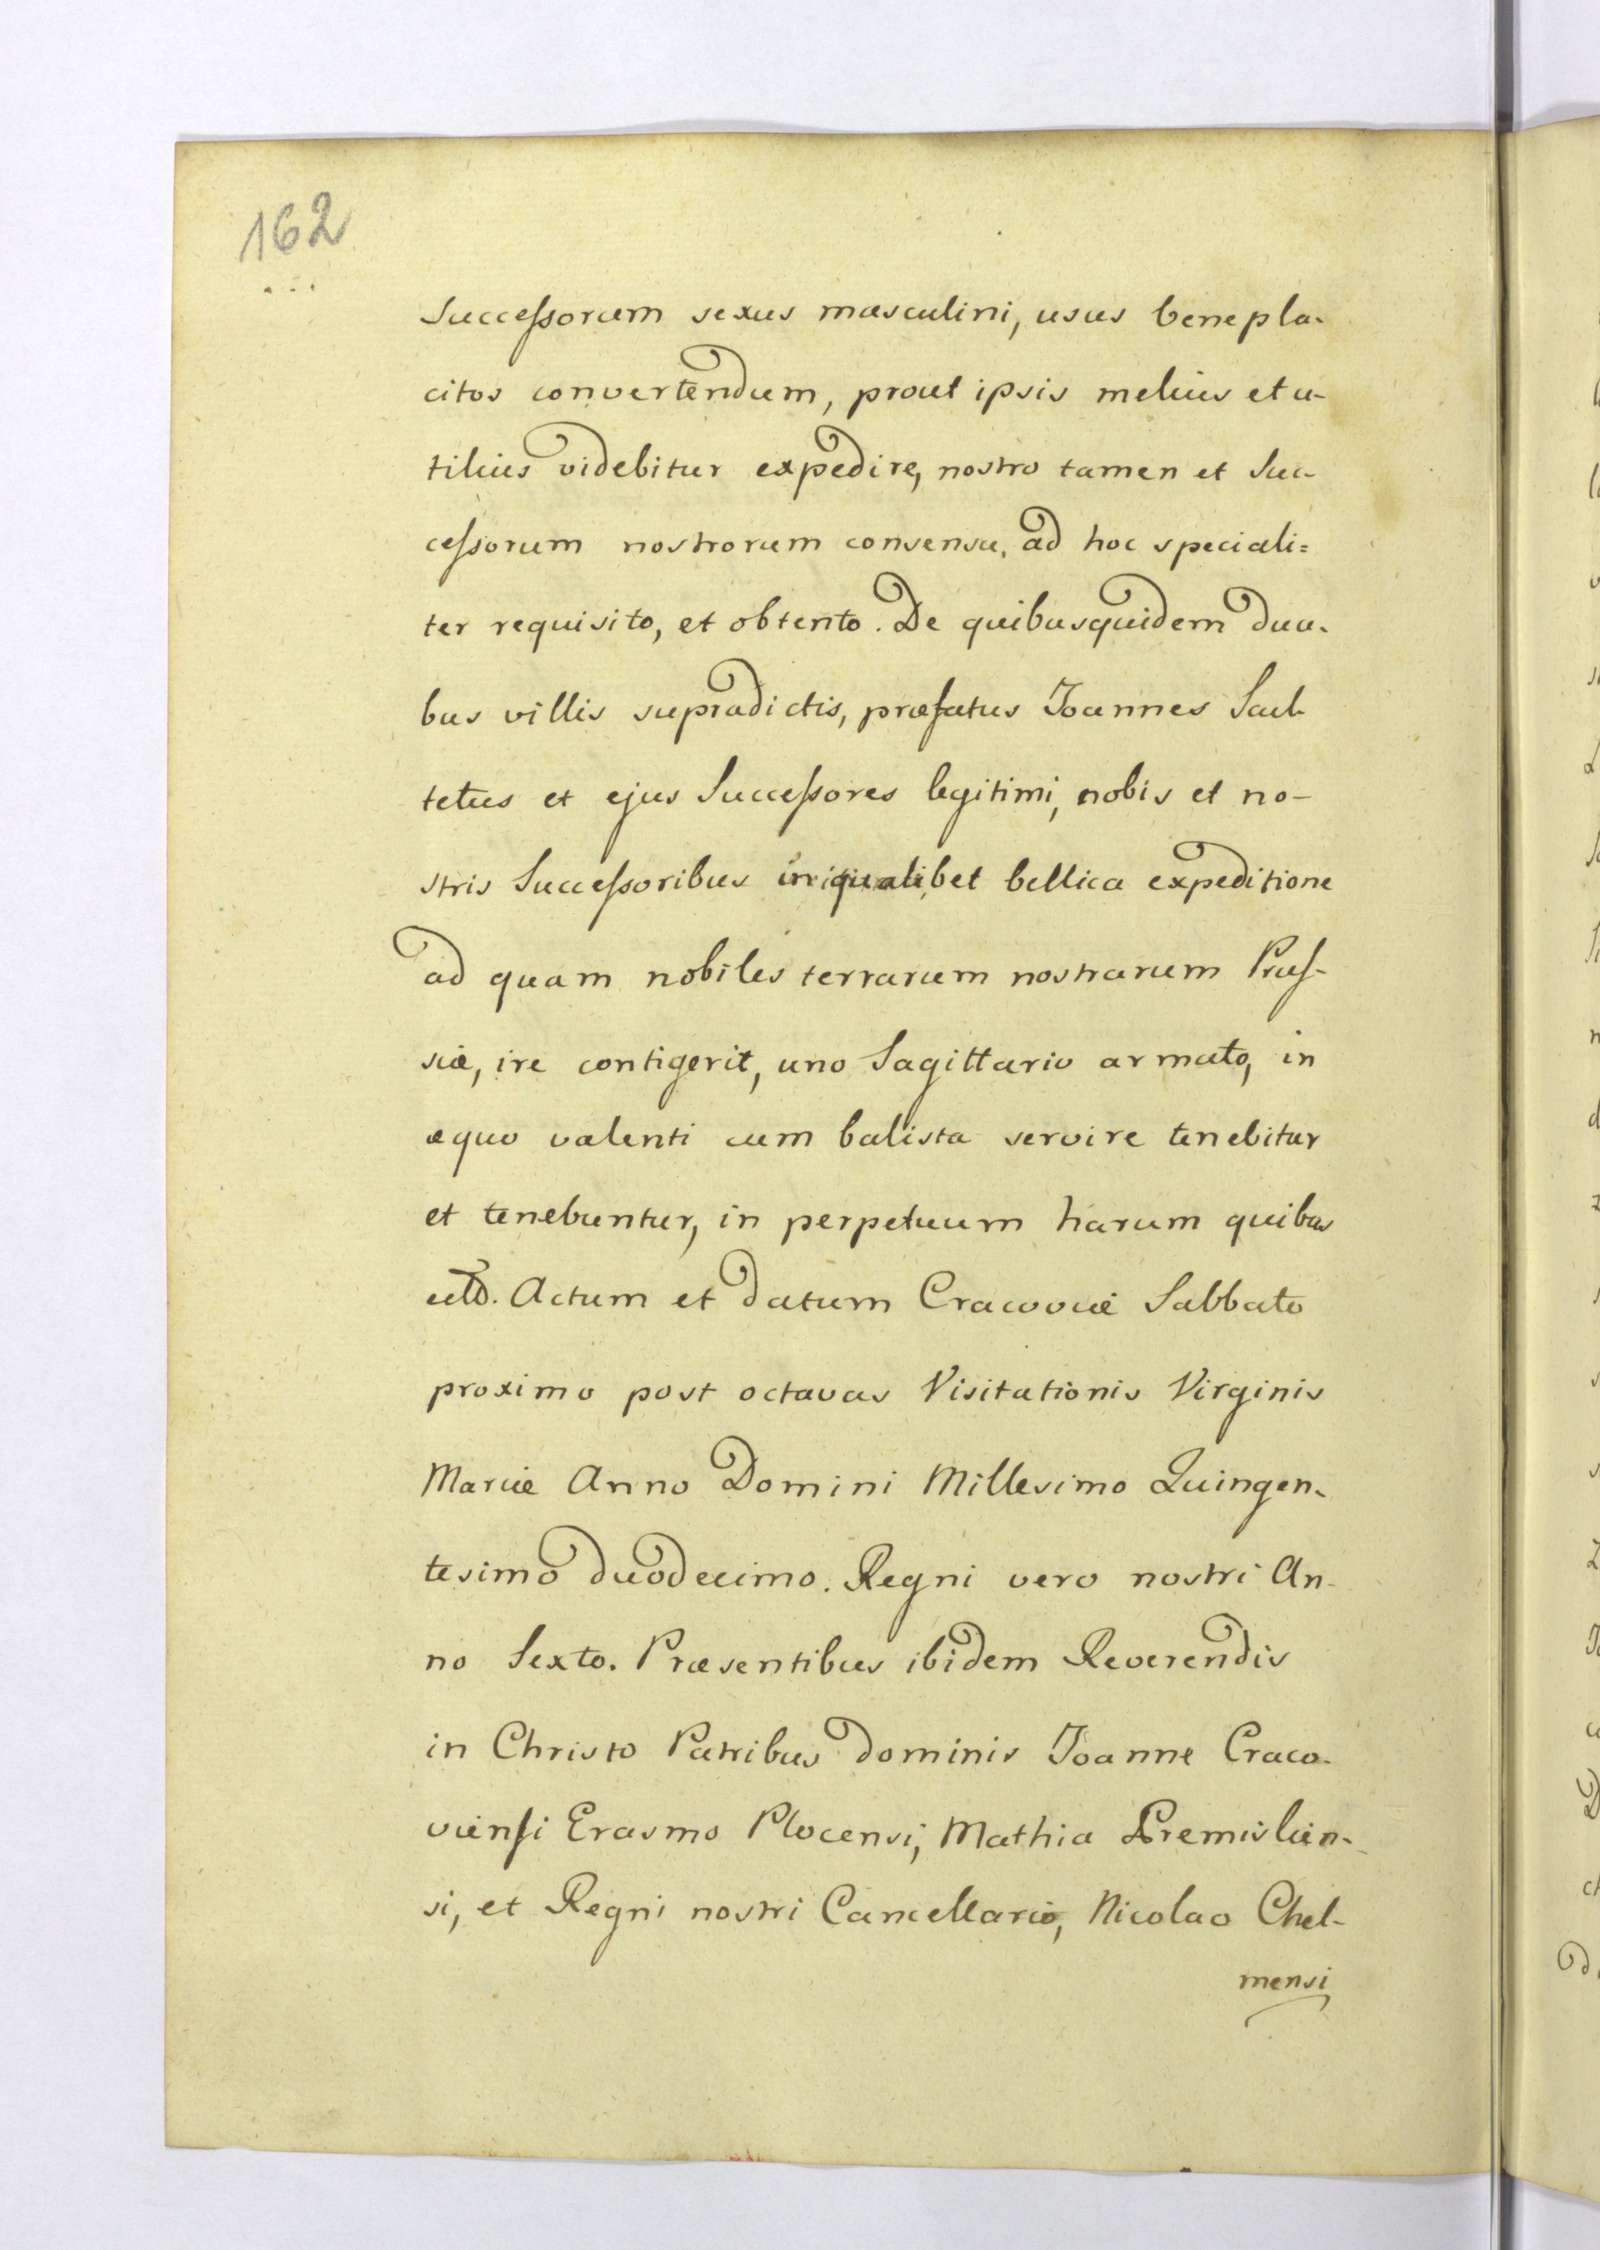 162
Successorum sexus masculini, usus benepla-
citos convertendum, prout ipsis melius et u-
tilius videbitur expedire, nostro tamen et Suc-
cessorum nostrorum consensu, ad hoc speciali=
ter requisito, et obtento. De quibusquidem dua-
bus villis supradictis, præfatus Joannes Scul-
tetus et ejus Successores legitimi, nobis et no-
stris Successoribus in qualibet bellica expeditione
ad quam nobiles terrarum nostrarum Prus-
siæ, ire contigerit, uno Sagittario armato, in
equo valenti cum balista servire tenebitur
et tenebuntur, in perpetuum harum quibus
Actum et datum Cracoviæ Sabbato
proximo post octavas Visitationis Virginis
Mariæ Anno Domini Millesimo Quingen-
tesimo duodecimo. Regni vero nostri An-
no Sexto. Præsentibus ibidem Reverendis
in Christo Patribus dominis Joanne Craco-
viensi Erasmo Plocensi, Mathia Premislien-
si, et Regni nostri Cancellario, Nicolao Chel-
mensi